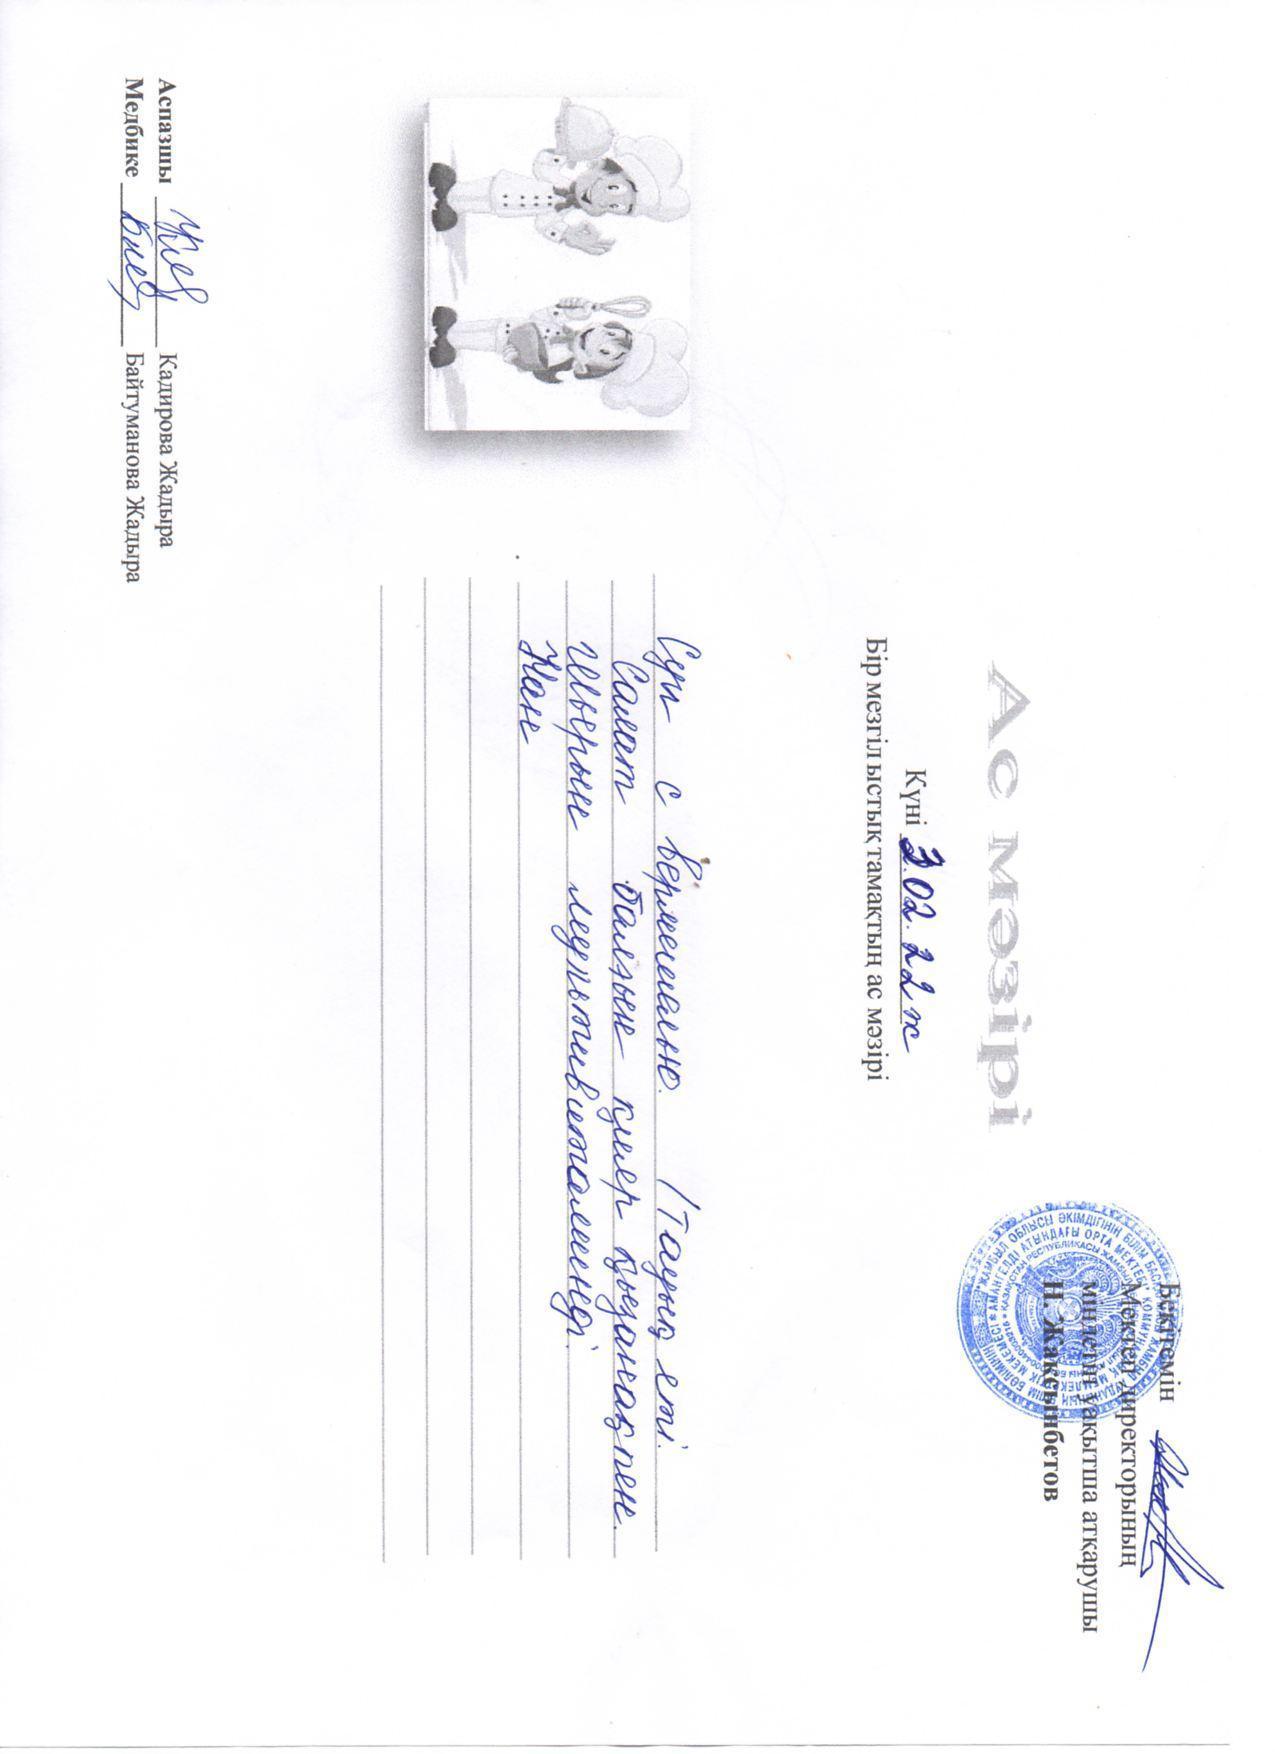 Бекітемін
Мектеп директорының
міндетін уақытша атқарушы
Н. Жаксынбетов
Ас мәзірі
Күні 3.02.22ж
Бір мезгіл ыстық тамақтың ас мәзірі
Суп с вермешелью. (Тауық еті.
Салат балғын қияр қызанақпен.
шырын мультивитаминді.
Нан
Аспазшы Кадирова Жадыра
Медбике Байтуманова Жадыра